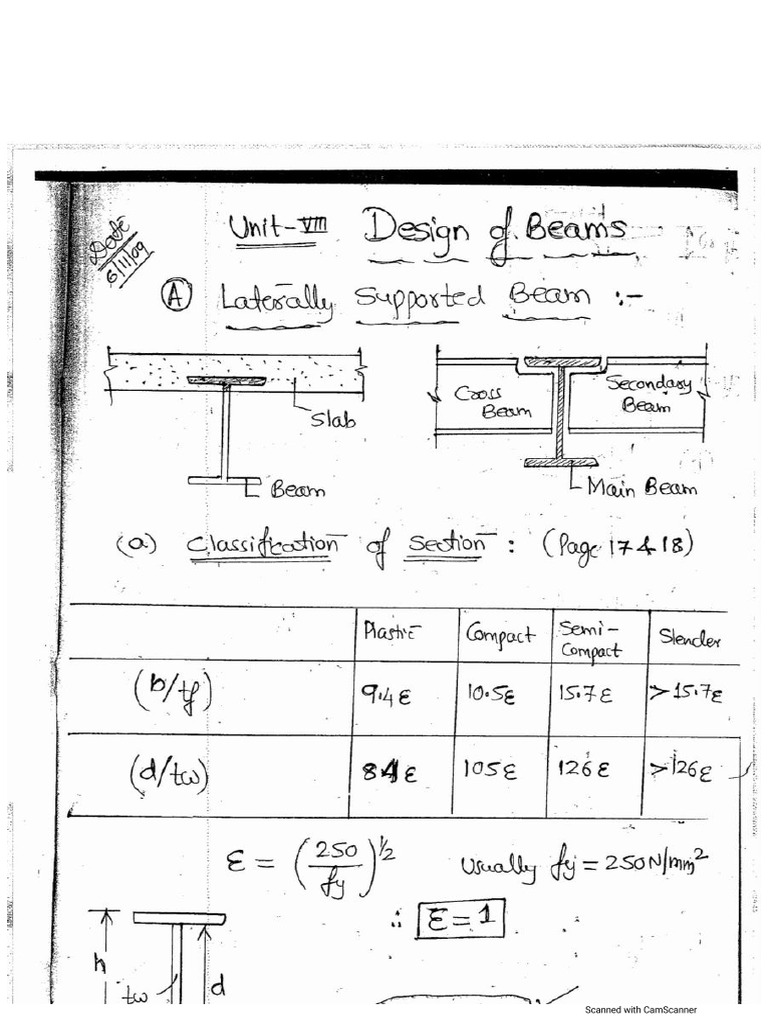 Date
6/11/09
Unit-VIII Design of Beams
(A) Laterally Supported Beam :-
Slab
Beam
Cross Beam
Secondary Beam
Main Beam
(a) Classification of Section : (Page 17 & 18)
Plastic Compact Semi-Compact Slender
(b/tf) 9.4ε 10.5ε 15.7ε >15.7ε
(d/tw) 84ε 105ε 126ε >126ε
ε = (250/fy)^1/2 Usually fy = 250N/mm²
∴ ε = 1
h
tw
d
Scanned with CamScanner